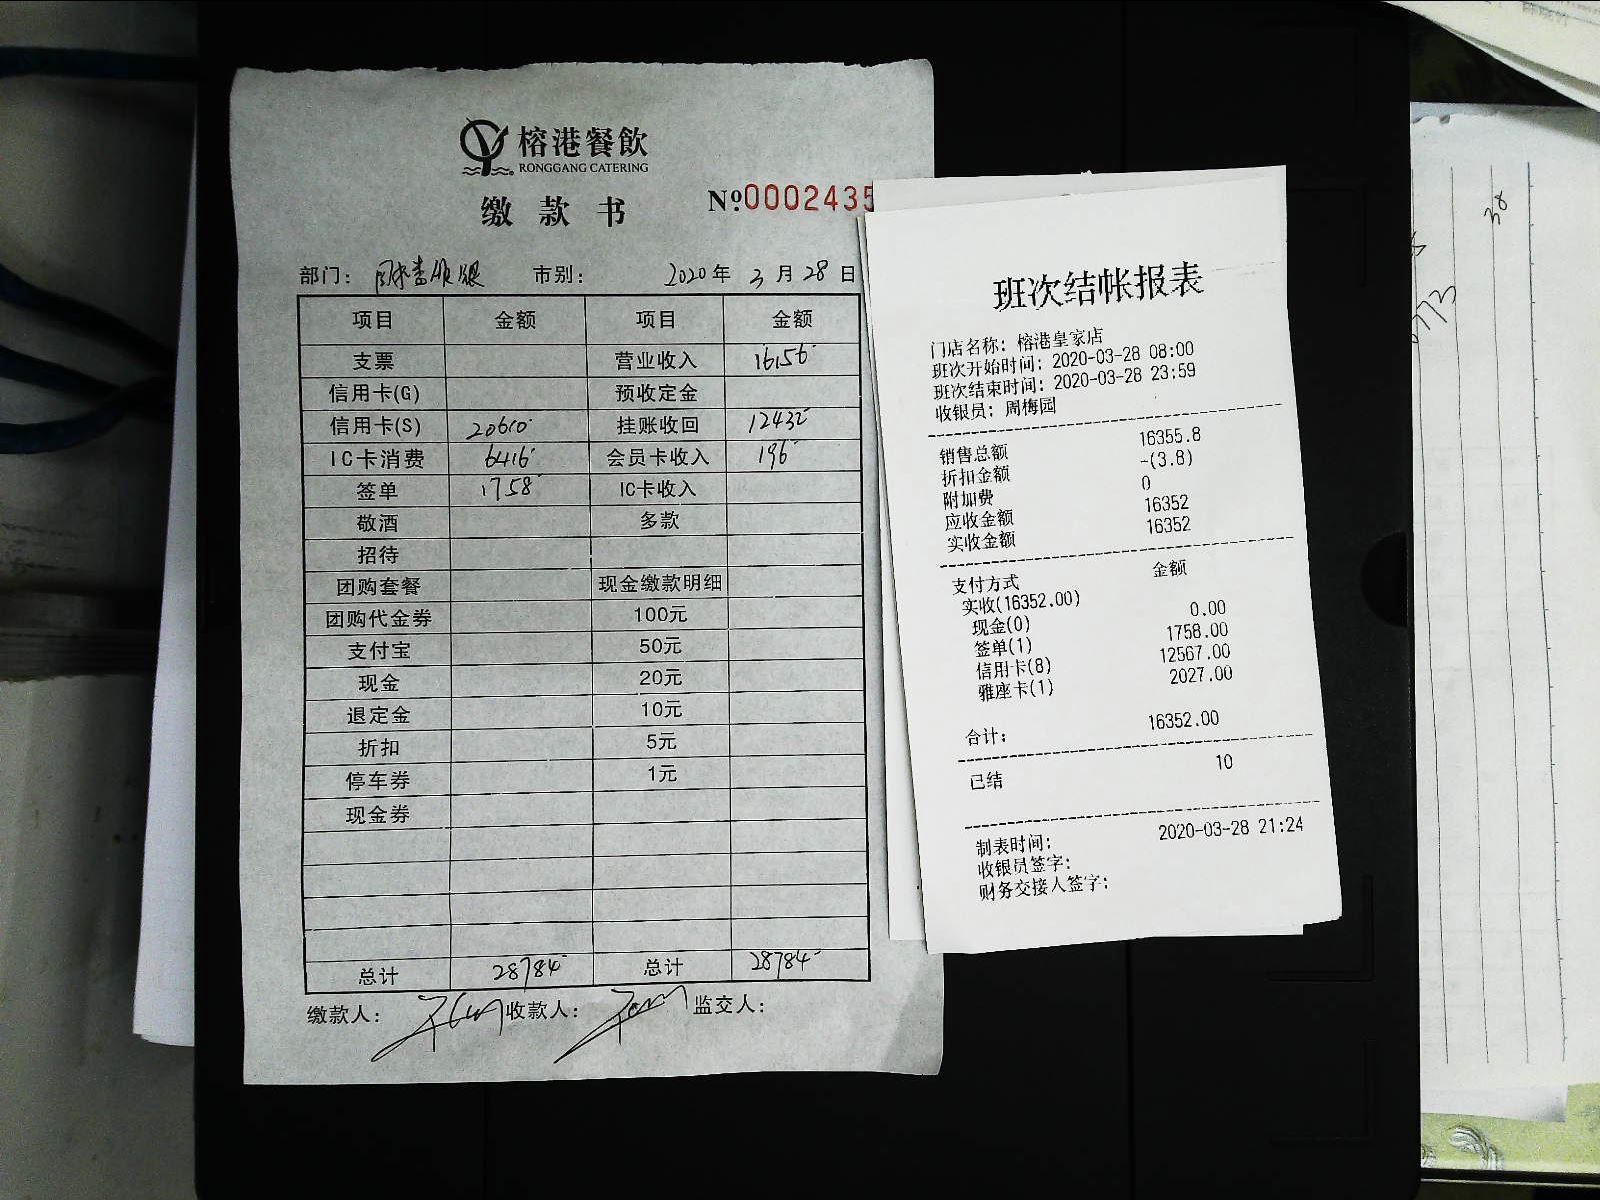 榕港餐飲
RONGGANG CATERING
缴款书
№0002435
部门： 市别： 2020年3月28日
项目 金额 项目 金额
支票 营业收入 16156
信用卡(G) 预收定金
信用卡(S) 20610 挂账收回 12432
IC卡消费 6416 会员卡收入 196
签单 1758 IC卡收入
敬酒 多款
招待
团购套餐 现金缴款明细
团购代金券 100元
支付宝 50元
现金 20元
退定金 10元
折扣 5元
停车券 1元
现金券
总计 28784 总计 28784
缴款人： 收款人： 监交人：
班次结帐报表
门店名称：榕港皇家店
班次开始时间：2020-03-28 08:00
班次结束时间：2020-03-28 23:59
收银员：周梅园
销售总额 16355.8
折扣金额 -(3.8)
附加费 0
应收金额 16352
实收金额 16352
支付方式 金额
实收(16352.00)
现金(0) 0.00
签单(1) 1758.00
信用卡(8) 12567.00
雅座卡(1) 2027.00
合计： 16352.00
已结 10
制表时间： 2020-03-28 21:24
收银员签字：
财务交接人签字：
38